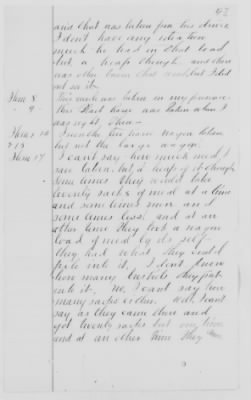 and that was taken from this drive
I don't have any idea how
much he had in that load
but a heap though and there
was other corn that
not see it.
Item 8. This much was taken in my presence.
" 9. This Dark horse was taken when I
was right there -
I the two horse wagon taken
but not the large wagon.
Item 17 I can't say how much meal I
saw taken but a heap of it though
Some times they would take
twenty sacks of meal at a time
and some times more and
some times less, and at an
other time They took a wagon
load of meal by its self
they had what they could
pile into it, I don't know
how many bushels they put
into it. No, I can't say how
many sacks either. Well, I can't
say as they came there and
got twenty sacks but one time
and at an other time they